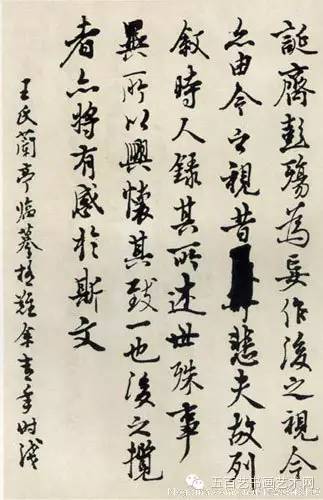 誕齊彭殤為妄作後之視今
亦由今之視昔悲夫故列
敘時人錄其所述世殊事
異所以興懷其致一也後之攬
者亦將有感於斯文
王氏蘭亭臨摹極難余壹年时
五百艺书画艺术网